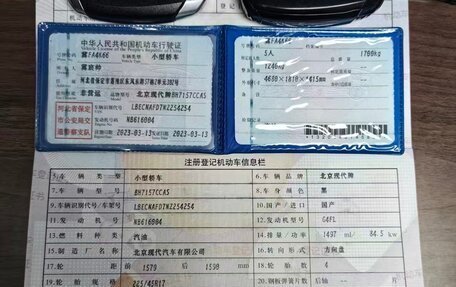 中华人民共和国机动车行驶证
冀FA4K66
小型轿车
非营运
北京现代牌BH7157CCA5
LBECNAFD7NZ254254
NB616004
河北省保定
市公安局交
通警察支队
2023-03-13
2023-03-13
冀FA4K66
5人
1700kg
1240kg
注册登记机动车信息栏
5. 车辆类型
小型轿车
6. 车辆品牌
北京现代牌
7. 车辆型号
BH7157CCA5
8. 车身颜色
黑
9. 车辆识别代号/车架号
LBECNAFD7NZ254254
10. 国产/进口
国产
11. 发动机号
NB616004
12. 发动机型号
G4FL
13. 燃料种类
汽油
14. 排量/功率
1497 ml/ 84.5 kw
15. 制造厂名称
北京现代汽车有限公司
16. 转向形式
方向盘
17. 轮距
前 1579 后 1590 mm
18. 轮胎数
4
19. 轮胎规格
225/45R17
20. 钢板弹簧片数
后轴 -- 片